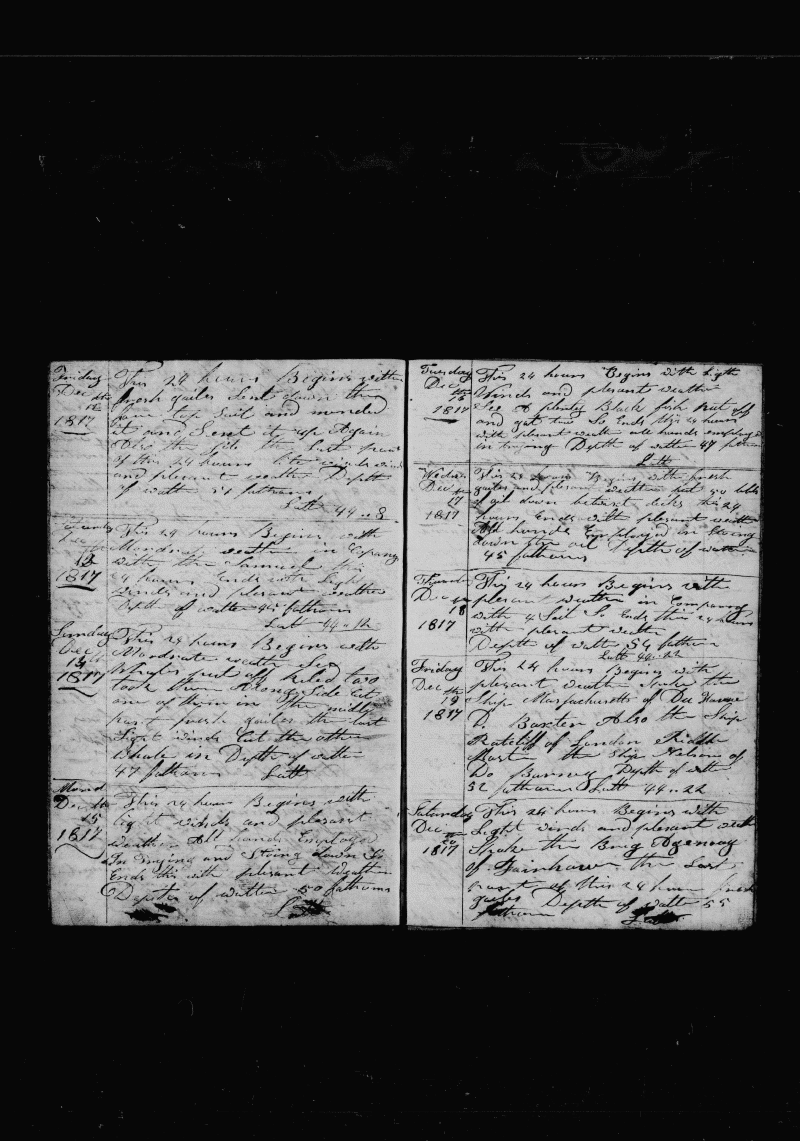 Friday
Dec th
12
1817
This 24 hours Begins with
fresh gailes Sent down the
fore top Sail and mended
it and Sent it up Again
the last part
of this 24 hours winds
and plesant weather Depth
of watter 51 fathoms
Latt 44..8
Dec
13
1817
This 24 hours Begins with
Moderate weather in Company
with the Samuel this
24 hours Ends with light
winds and plesant weather
Depth of watter 45 fathoms
Latt 44..12
Sunday
Dec
14
1817
This 24 hours Begins with
Moderate weather
Whales put off kiled two
took them Along Side Cut
one of them in the midle
part fresh gailes the last
light winds Cut the other
Whale in Depth of watter
47 fathoms Latt
Mond
Dec th
15
1817
This 24 hours Begins with
light winds and plesant
weather All hands Employed
In trying and Stoing down So
Ends this with plesant Weather
Depth of watter 50 fathoms
Latt
Tuesday
Dec
16
1817
This 24 hours Begins with light
Winds and plesant weather
See A plenty Black fish Put off
and got two So Ends this 24 hours
with plesant weather all hands employed
in trying Depth of watter 47 fathoms
Latt
Wednes
Dec
17
1817
This 24 hours Begins with fresh
gailes and plesant weather put 50 bbls
of oil down betwixt decks this 24
hours Ends with plesant weather
All hands Employed in Stoing
down the oil Depth of watter
45 fathoms
Thursd
Dec
18
1817
This 24 hours Begins with
plesant weather in Company
with 4 Sail So Ends this 24 hours
with plesant weather
Depth of watter 54 fathoms
Latt 44..22
Friday
Dec th
19
1817
This 24 hours Begins with
plesant weather the
Ship Massachusetts of
D. Baxter Also the Ship
Ratcliff of London
the Ship Nelson of
Do Depth of watter
52 fathoms Latt 44..22
Saturday
Dec
20
1817
This 24 hours Begins with
Light winds and plesant weather
Spoke the Brig Agenoray
of Fairhaven the Last
part of this 24 hours fresh
gailes Depth of watter 55
fathoms Latt